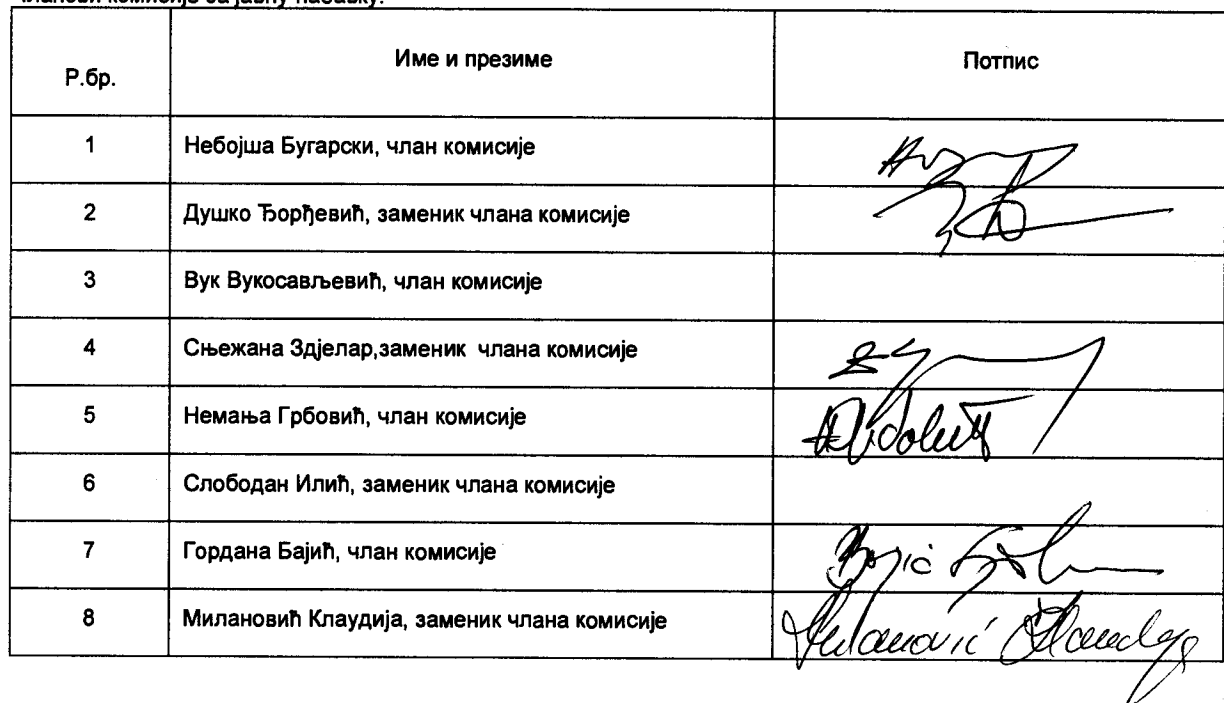 чланови комисије за јавну набавку:
Р.бр. Име и презиме Потпис
1 Небојша Бугарски, члан комисије
2 Душко Ђорђевић, заменик члана комисије
3 Вук Вукосављевић, члан комисије
4 Сњежана Здјелар,заменик члана комисије
5 Немања Грбовић, члан комисије
6 Слободан Илић, заменик члана комисије
7 Гордана Бајић, члан комисије
8 Милановић Клаудија, заменик члана комисије Milanović Klaudija